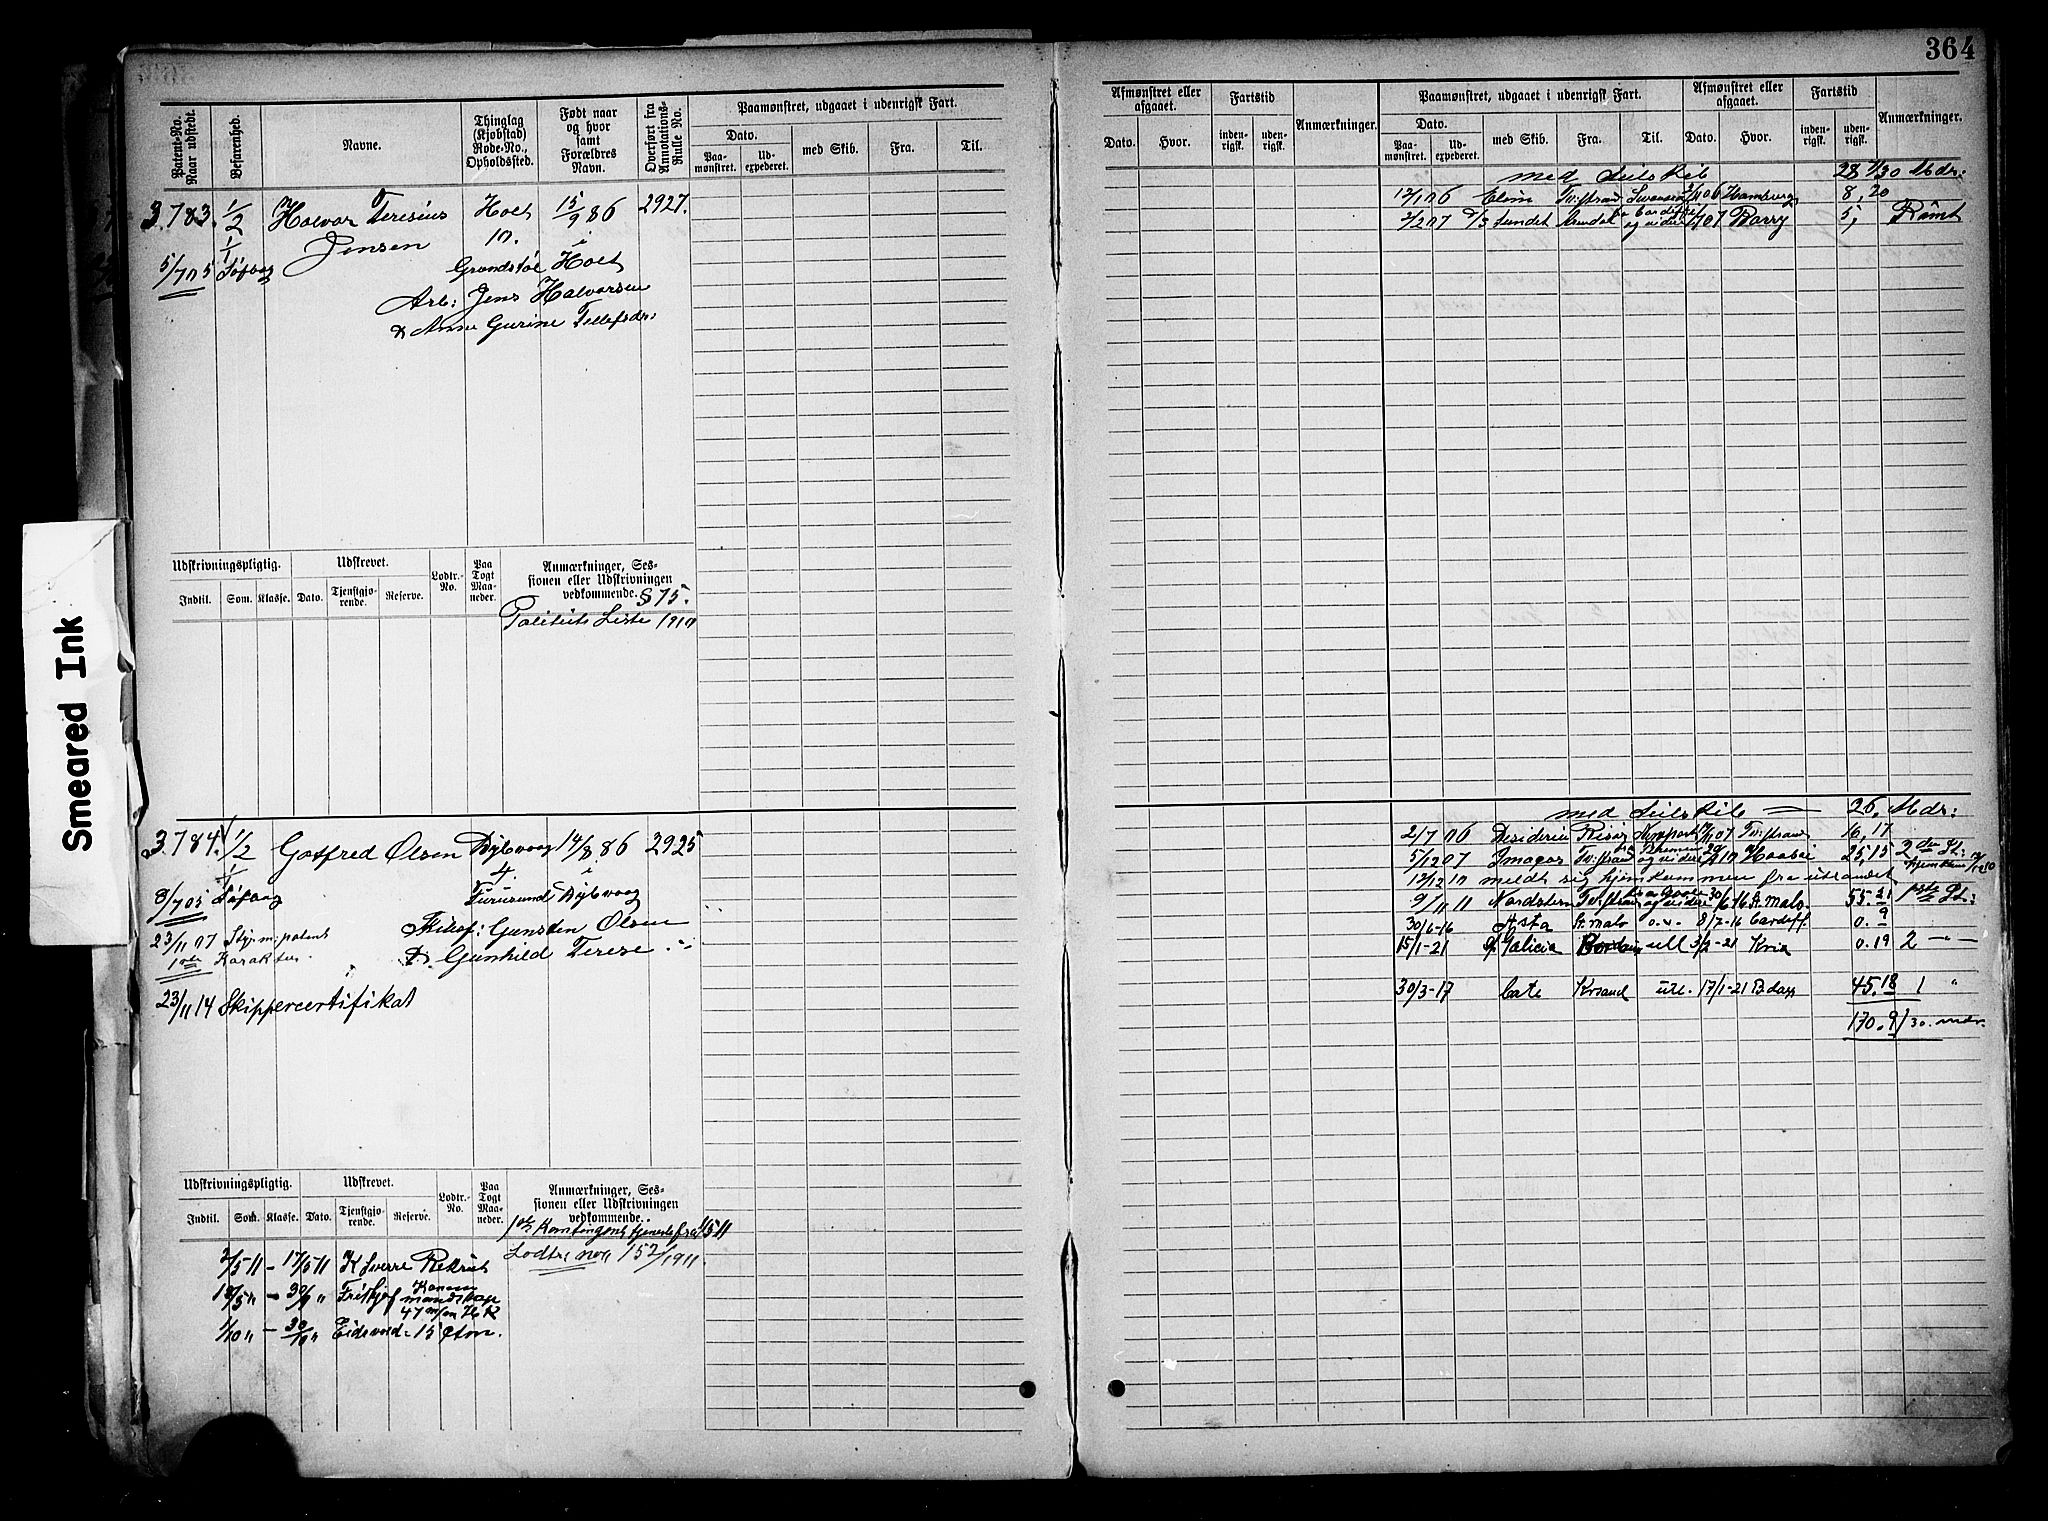 364
Patent-No. Naar udstedt.
Befarenhed.
Navne.
Thinglag (Kjøbstad) Rode-No., Opholdssted.
Født naar og hvor samt Forældres Navn.
Overført fra Annotations-Rulle No.
Paamønstret, udgaaet i udenrigsk Fart.
Dato.
Paa-mønstret.
Ud-expederet.
med Skib.
Fra.
Til.
Afmønstret eller afgaaet.
Dato.
Hvor.
Fartstid
inden-rigsk.
uden-rigsk.
Anmærkninger.
Paamønstret, udgaaet i udenrigsk Fart.
Dato.
Paa-mønstret.
Ud-expederet.
med Skib.
Fra.
Til.
Afmønstret eller afgaaet.
Dato.
Hvor.
Fartstid
inden-rigsk.
uden-rigsk.
Anmærkninger.
3.783. 1/2 Halvor Teresius Holt 15/9 86 2927.
Jensen
5/7 05
Grundstøl Holt
Arb: Jens Halvorsen
& Anne Gurine Tellefsdr:
med Seilskib 28 Mdr:
12/1 06 06 Hamburg 8, 20
2/2 07 Sundet Arendal og videre 07 Barry 5, Rømt
Udskrivningspligtig.
Indtil.
Som.
Klasse.
Udskrevet.
Dato.
Tjenstgjø-rende.
Reserve.
Lodtr.-No.
Paa Togt Maa-neder.
Anmærkninger, Ses-sionen eller Udskrivningen vedkommende. § 75.
Politiets Liste 1910
Smeared Ink
3.784. 1/2 Gotfred Olsen Dybvaag 14/8 86 2925
4. i
8/7 05 Furusund Dybvaag
23/11 07 Styrm: patent Gunsten Olsen
1ste Karakter. & Gunhild Terese
23/11 14 Skippercertifikat
med Seilskib 26, Mdr:
2/7 06 Desideria Risør Newyork 07 Tv:strand 16, 17
5/12 07 Imogas Tv:strand og videre 25, 15 2den St:
12/12 10 meldt sig hjemkommen fra utlandet
9/11 11 Nordstern Tv:strand og videre 30/6 16 St. Malo. 55. 21 1ste St:
30/6-16 Asta St. Malo o.v. 8/7-16 Cardiff. 0. 9
15/1-21 Galicia utl 3/2-21 Kria 0. 19 2 — —
30/3-17 Cate Krsand utl. 17/1-21 45. 18 1 "
170. 9/30. mdr.
Udskrivningspligtig.
Indtil.
Som.
Klasse.
Udskrevet.
Dato.
Tjenstgjø-rende.
Reserve.
Lodtr.-No.
Paa Togt Maa-neder.
Anmærkninger, Ses-sionen eller Udskrivningen vedkommende.
1ste Kontingent tjeneste fra 1/5 11
Lodtr: no: 152/1911.
2/5 11 – 17/5 11 K Sverre Rekrut
18/5 " – 30/9 " Fritjof Kanon mandskap
47 m/m H K
1/10 " – 30/10 " Eidsvold – 15 ctm.